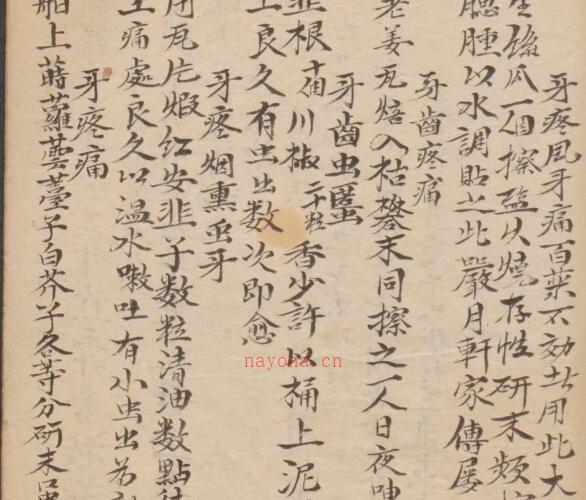 牙疼風牙痛百藥不効者用此大
生絲瓜一個擦盐火燒存性研末頻
腮腫以水調貼之此嚴月軒家傳屡
牙齒疼痛
老姜瓦焙入枯礬末同擦之一人日夜呻
牙齒虫䘌
韮根十個川椒二十粒香少許以桶上泥
上良久有虫出数次即愈
牙疼烟熏虫牙
用瓦片煅红安韮子数粒清油数點
土痛處良久以温水嗽吐有小虫出為
牙疼痛
舶上莳蘿蕓薹子白芥子各等分研末口
nayona.cn